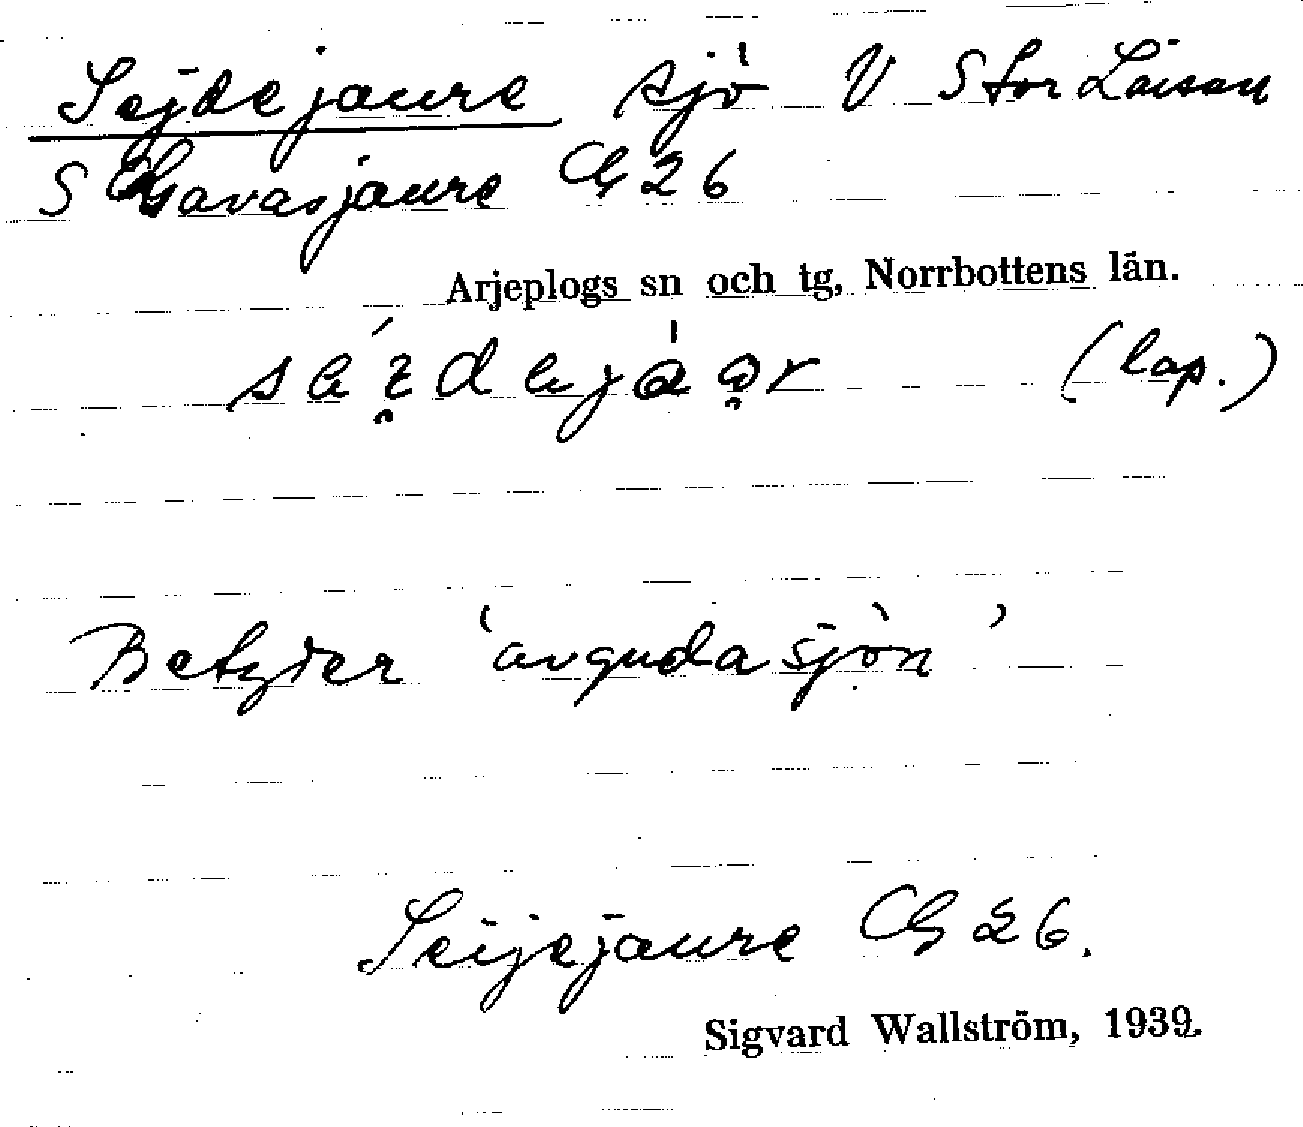 Sejdejaure sjö V Storlaisan
S Gavasjaure G 26
Arjeplogs sn och tg, Norrbottens län.
(lap.)
Betyder 'avgudasjön'
Seijejaure G 26.
Sigvard Wallström, 1939.